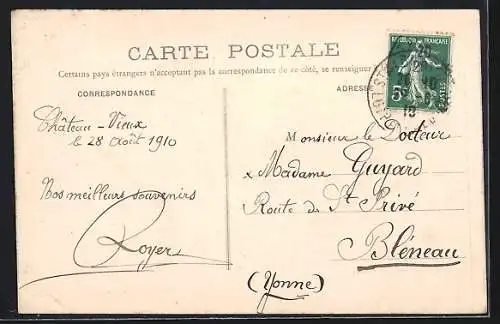 CARTE POSTALE
Certains pays étrangers n'acceptant pas la correspondance de ce côté, se renseigner
CORRESPONDANCE
ADRESSE
REPUBLIQUE FRANÇAISE
5c
POSTES
Château-Vieux
le 28 Août 1910
Nos meilleurs souvenirs
Royer
Monsieur le Docteur
& Madame Guyard
Route de St Privé
Bléneau
(Yonne)